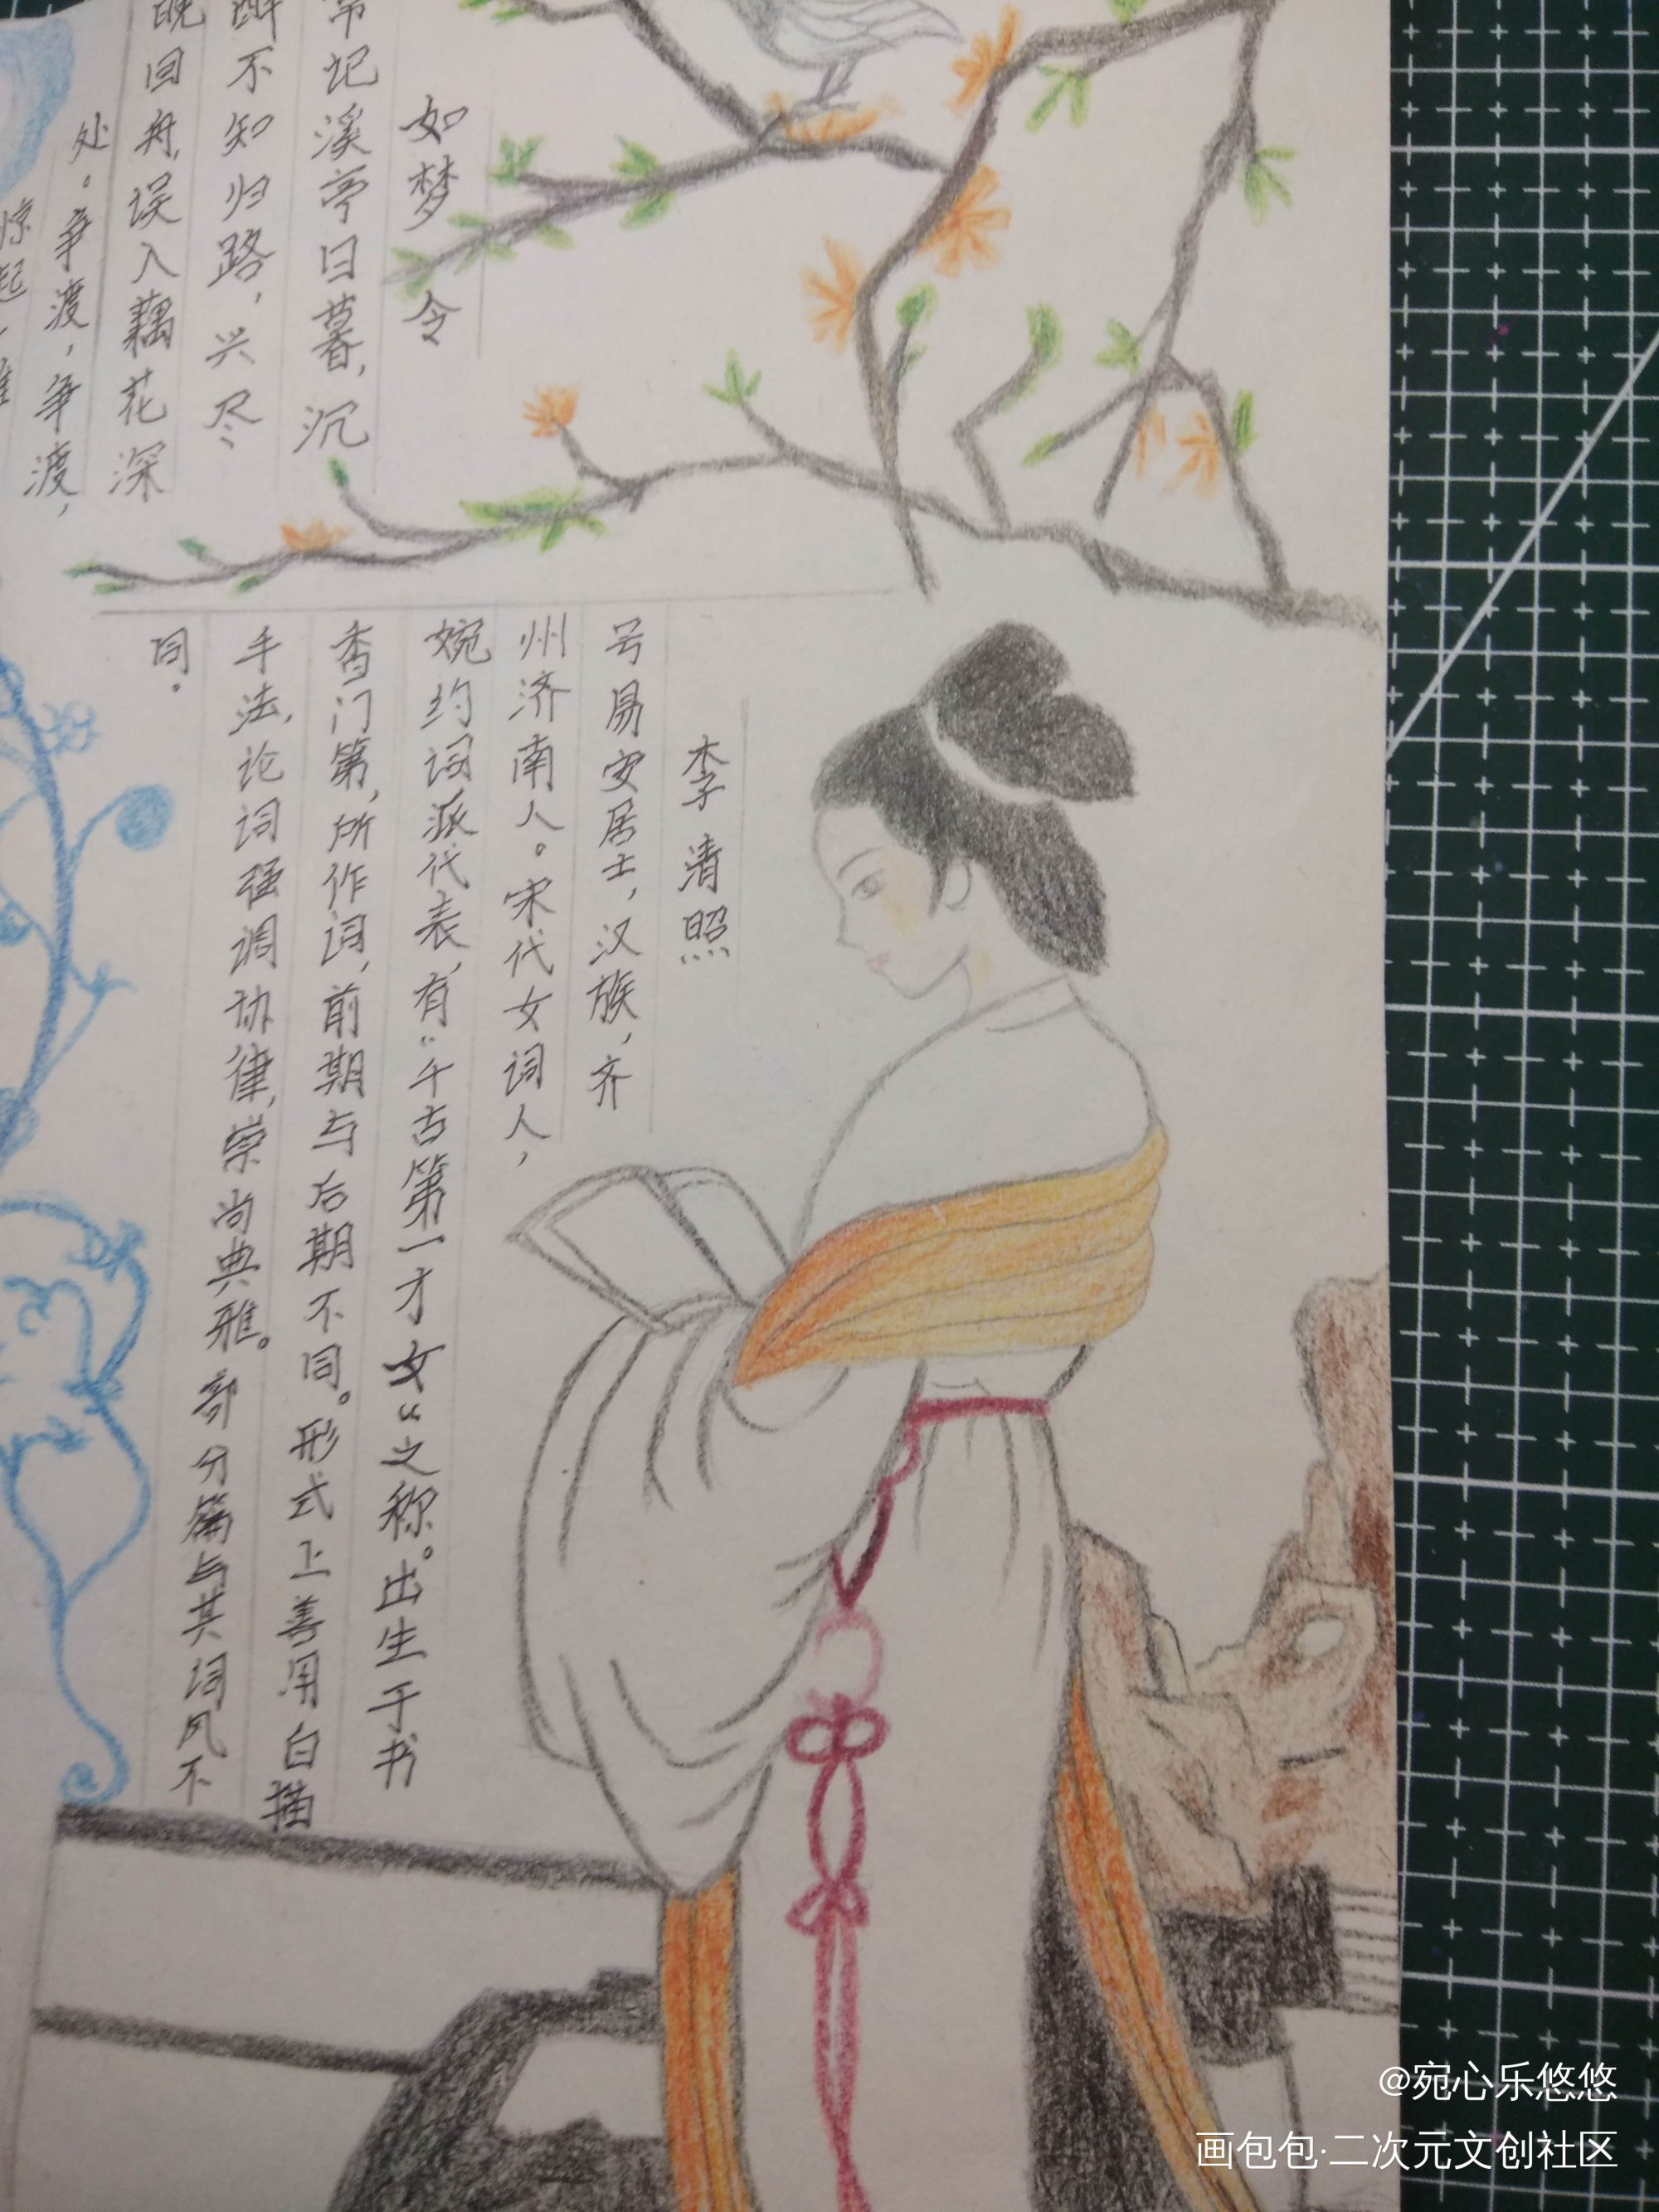 如梦令
常记溪亭日暮,沉
醉不知归路,兴尽
晚回舟,误入藕花深
处。争渡,争渡,
惊起一滩
李清照
号易安居士,汉族,齐
州济南人。宋代女词人,
婉约词派代表,有“千古第一才女“之称。出生于书
香门第,所作词,前期与后期不同。形式上善用白描
手法,论词强调协律,崇尚典雅。部分篇与其词风不
同.
@宛心乐悠悠
画包包·二次元文创社区